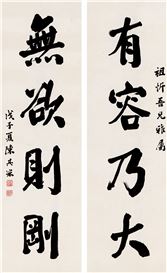 祖忻吾兄雅屬
有容乃大
無欲則剛
戊子夏陳其采